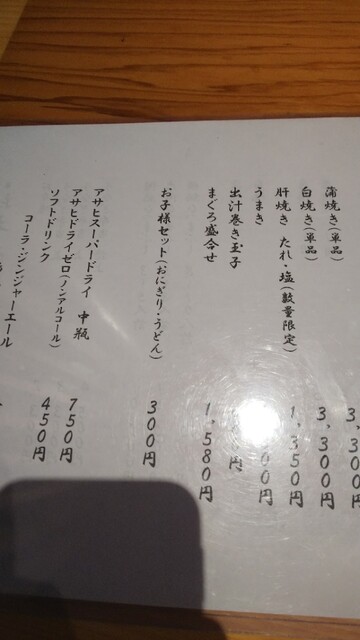 蒲焼き(単品) 3,300円
白焼き(単品) 3,300円
肝焼き たれ・塩(数量限定) 1,350円
うまき 00円
出汁巻き玉子 円
まぐろ盛合せ 1,580円
お子様セット(おにぎり・うどん) 300円
アサヒスーパードライ 中瓶 750円
アサヒドライゼロ(ノンアルコール) 450円
ソフトドリンク
コーラ・ジンジャーエール